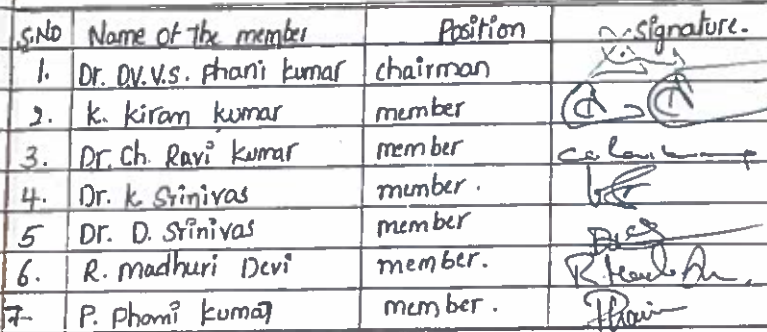 S.No Name of the member Position Signature.
1. Dr. DV.V.S. Phani Kumar chairman
2. K. Kiram Kumar member
3. Dr. Ch. Ravi Kumar member
4. Dr. K Srinivas member.
5 Dr. D. Srinivas member
6. R. madhuri Devi member.
7- P. Phani Kumar member.